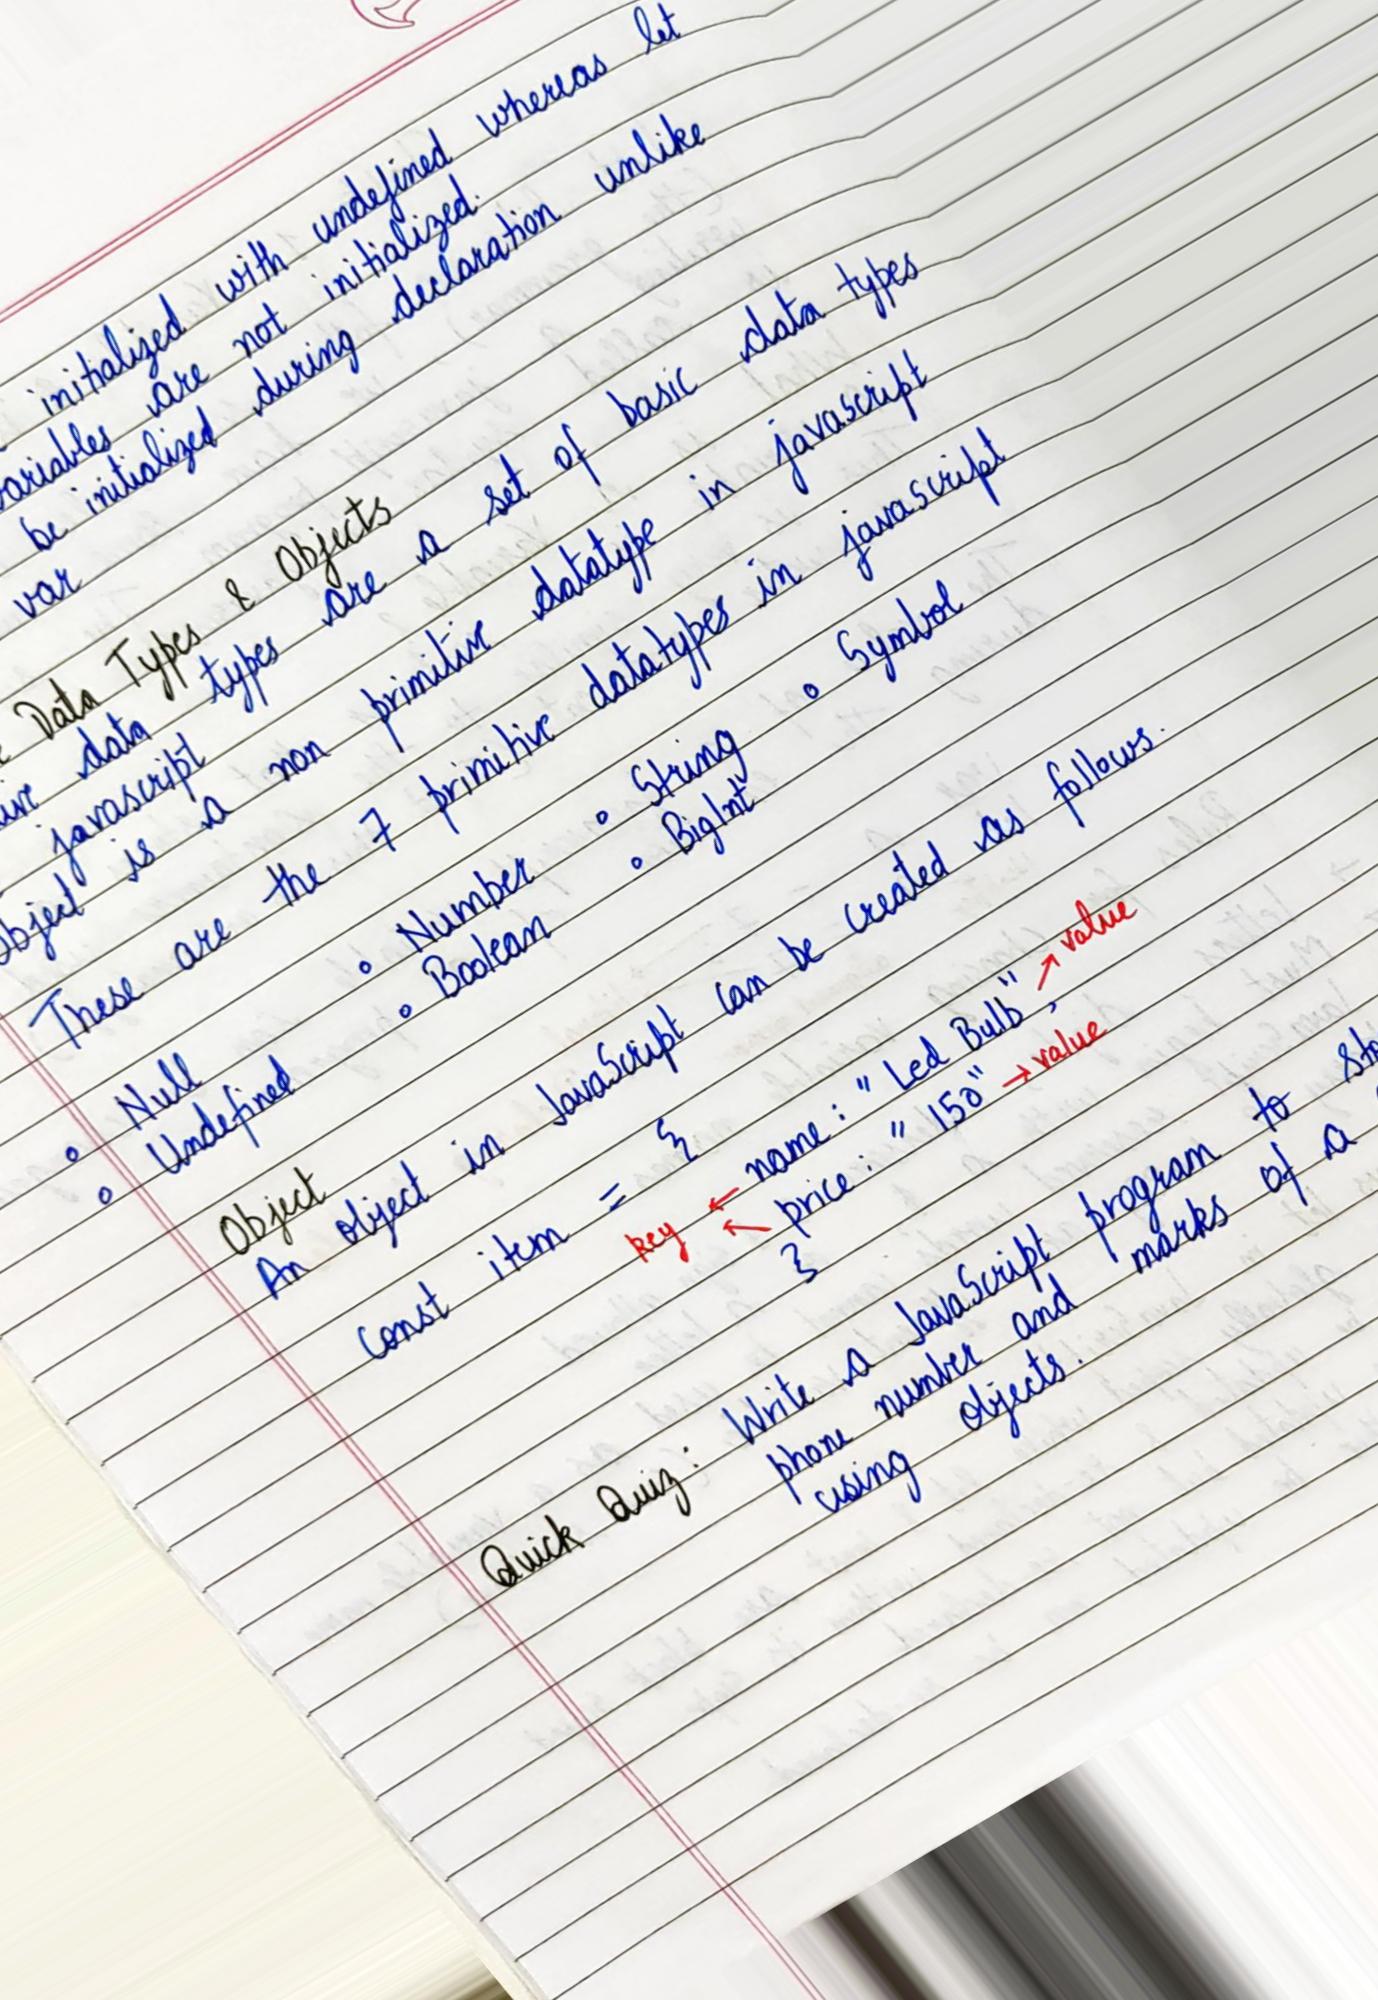 initialized with undefined whereas let
variables are not initialized.
be initialized during declaration unlike
var
Data Types & Objects
data types are a set of basic data types
javascript
Object is a non primitive datatype in javascript
These are the 7 primitive datatypes in javascript
◦ Null ◦ Number ◦ String ◦ Symbol
◦ Undefined ◦ Boolean ◦ BigInt
Object
An object in JavaScript can be created as follows.
const item = {
name : "Led Bulb", → value
key ← price : "150" → value
}
Quick Quiz : Write a JavaScript program to
phone number and marks of a
using objects.